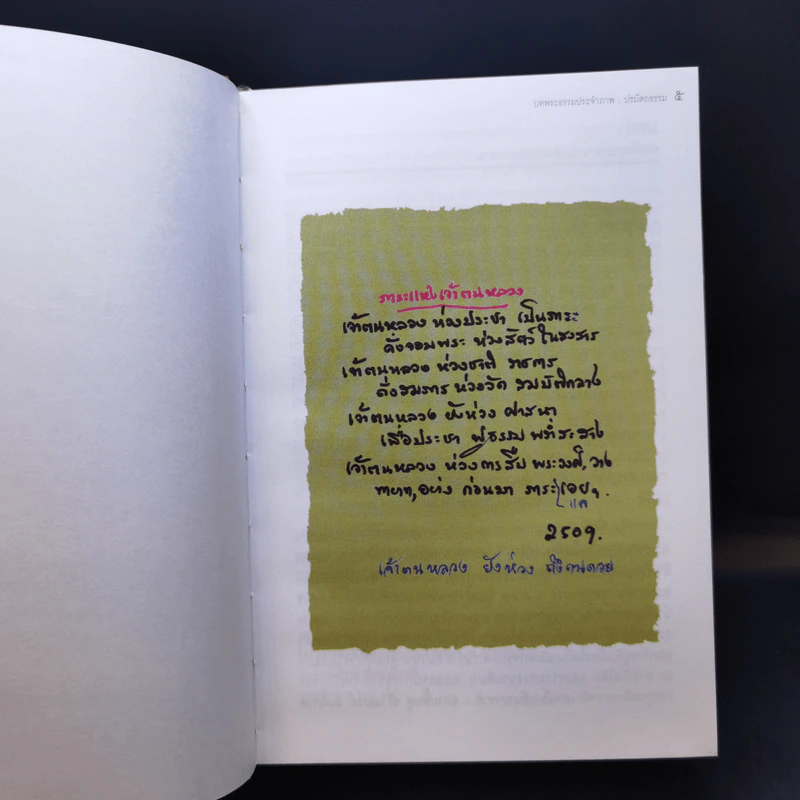 บทพระธรรมประจำภาพ : ปรมัตถธรรม ๕
ภาระแห่งเจ้าตนหลวง
เจ้าตนหลวง ห่วงประชา เป็นภาระ
ดั่งจอมพระ ห่วงสัตว์ ในสงสาร
เจ้าตนหลวง ห่วงชาติ ราชการ
ดั่งสมภาร ห่วงวัด สมบัติกลาง
เจ้าตนหลวง ยังห่วง ศาสนา
เพื่อประชา สู่ธรรม
เจ้าตนหลวง ห่วงการสืบ พระวงศ์, วาง
ทายาท, อย่าง ก่อนมา ภาระเอย ฯ
แล
2509.
เจ้าตนหลวง ยังห่วง ถึงคนดอย